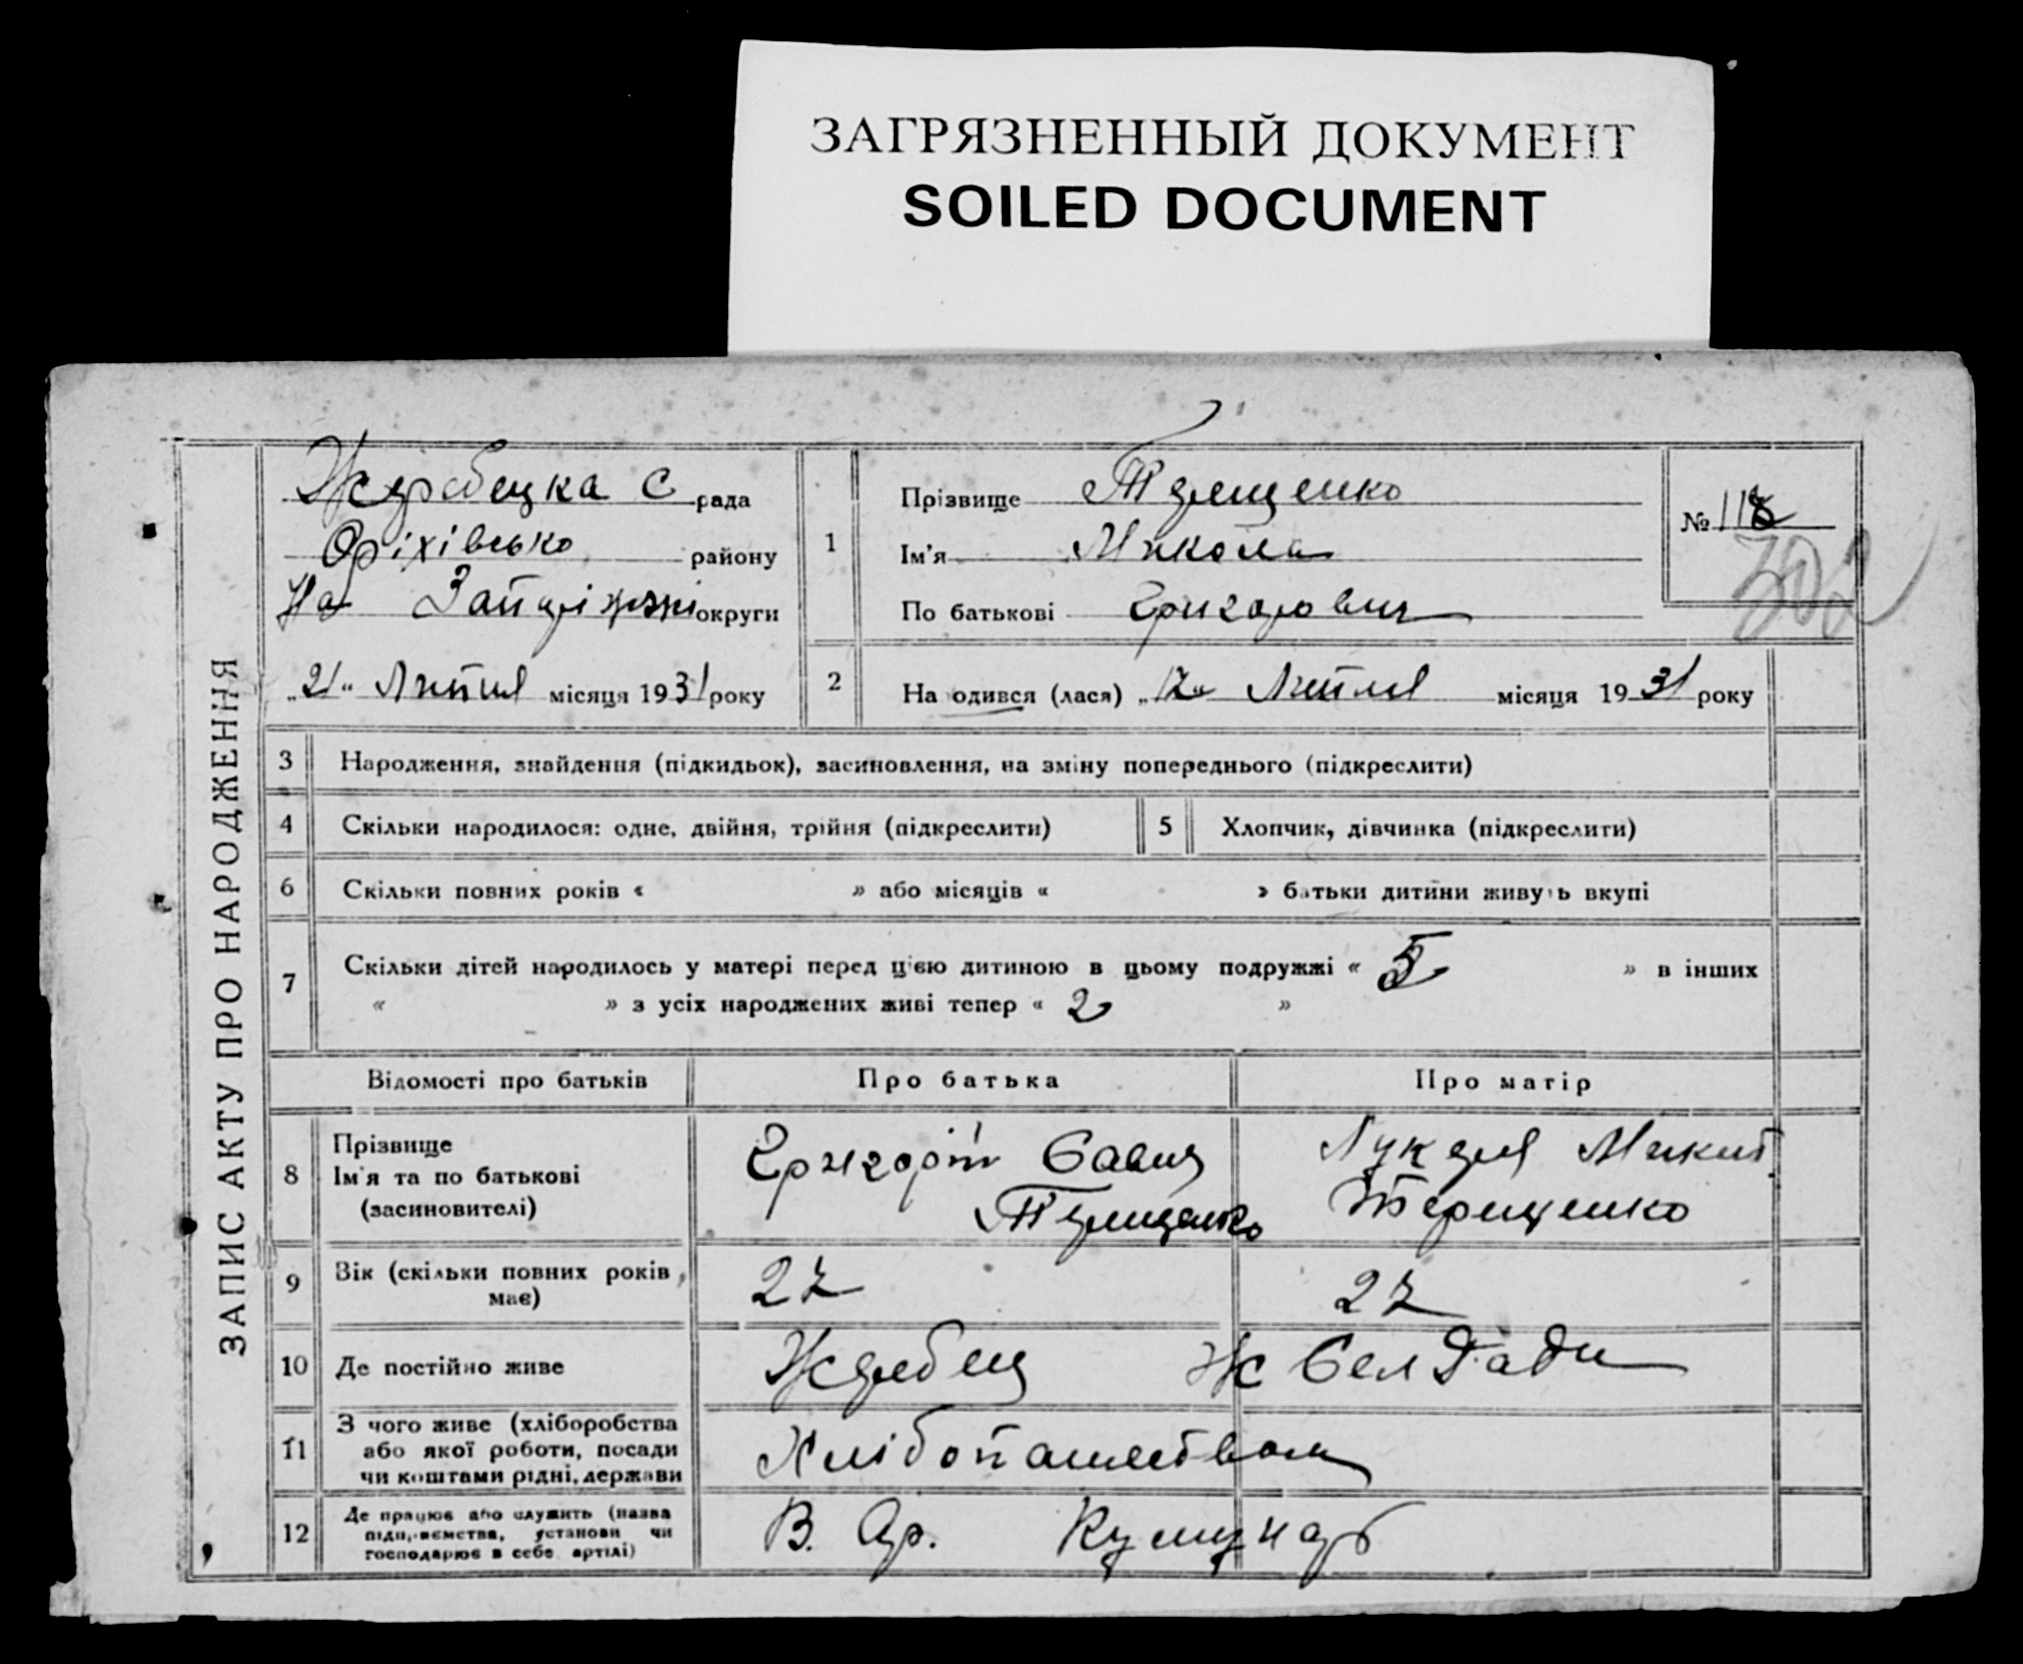 ЗАГРЯЗНЕННЫЙ ДОКУМЕНТ
SOILED DOCUMENT
ЗАПИС АКТУ ПРО НАРОДЖЕННЯ
Жеребецка С рада
Оріхівсько району
На Запоріжжі округи
„21" Липня місяця 1931 року
1
Прізвище Терещенко
Ім'я Микола
По батькові Григорович
№ 118
302
2
На одився (лася) „12" Липня місяця 1931 року
3 Народження, знайдення (підкидьок), засиновлення, на зміну попереднього (підкреслити)
4 Скільки народилося: одне, двійня, трійня (підкреслити)
5 Хлопчик, дівчинка (підкреслити)
6 Скільки повних років « » або місяців « » батьки дитини живуть вкупі
7 Скільки дітей народилось у матері перед ц'єю дитиною в цьому подружжі « 5 » в інших
« » з усіх народжених живі тепер « 2 »
Відомості про батьків Про батька Про матір
8 Прізвище
Ім'я та по батькові
(засиновителі)
Григорій Савич
Терещенко
Лукеря Микит
Терещенко
9 Вік (скільки повних років має) 27 27
10 Де постійно живе Жеребец Ж
11 З чого живе (хліборобства
або якої роботи, посади
чи коштами рідні, держави
Хлібопашеством
12 Де працює або служить (назва
підприємства, установи чи
господарює в себе артілі)
В. Ар.